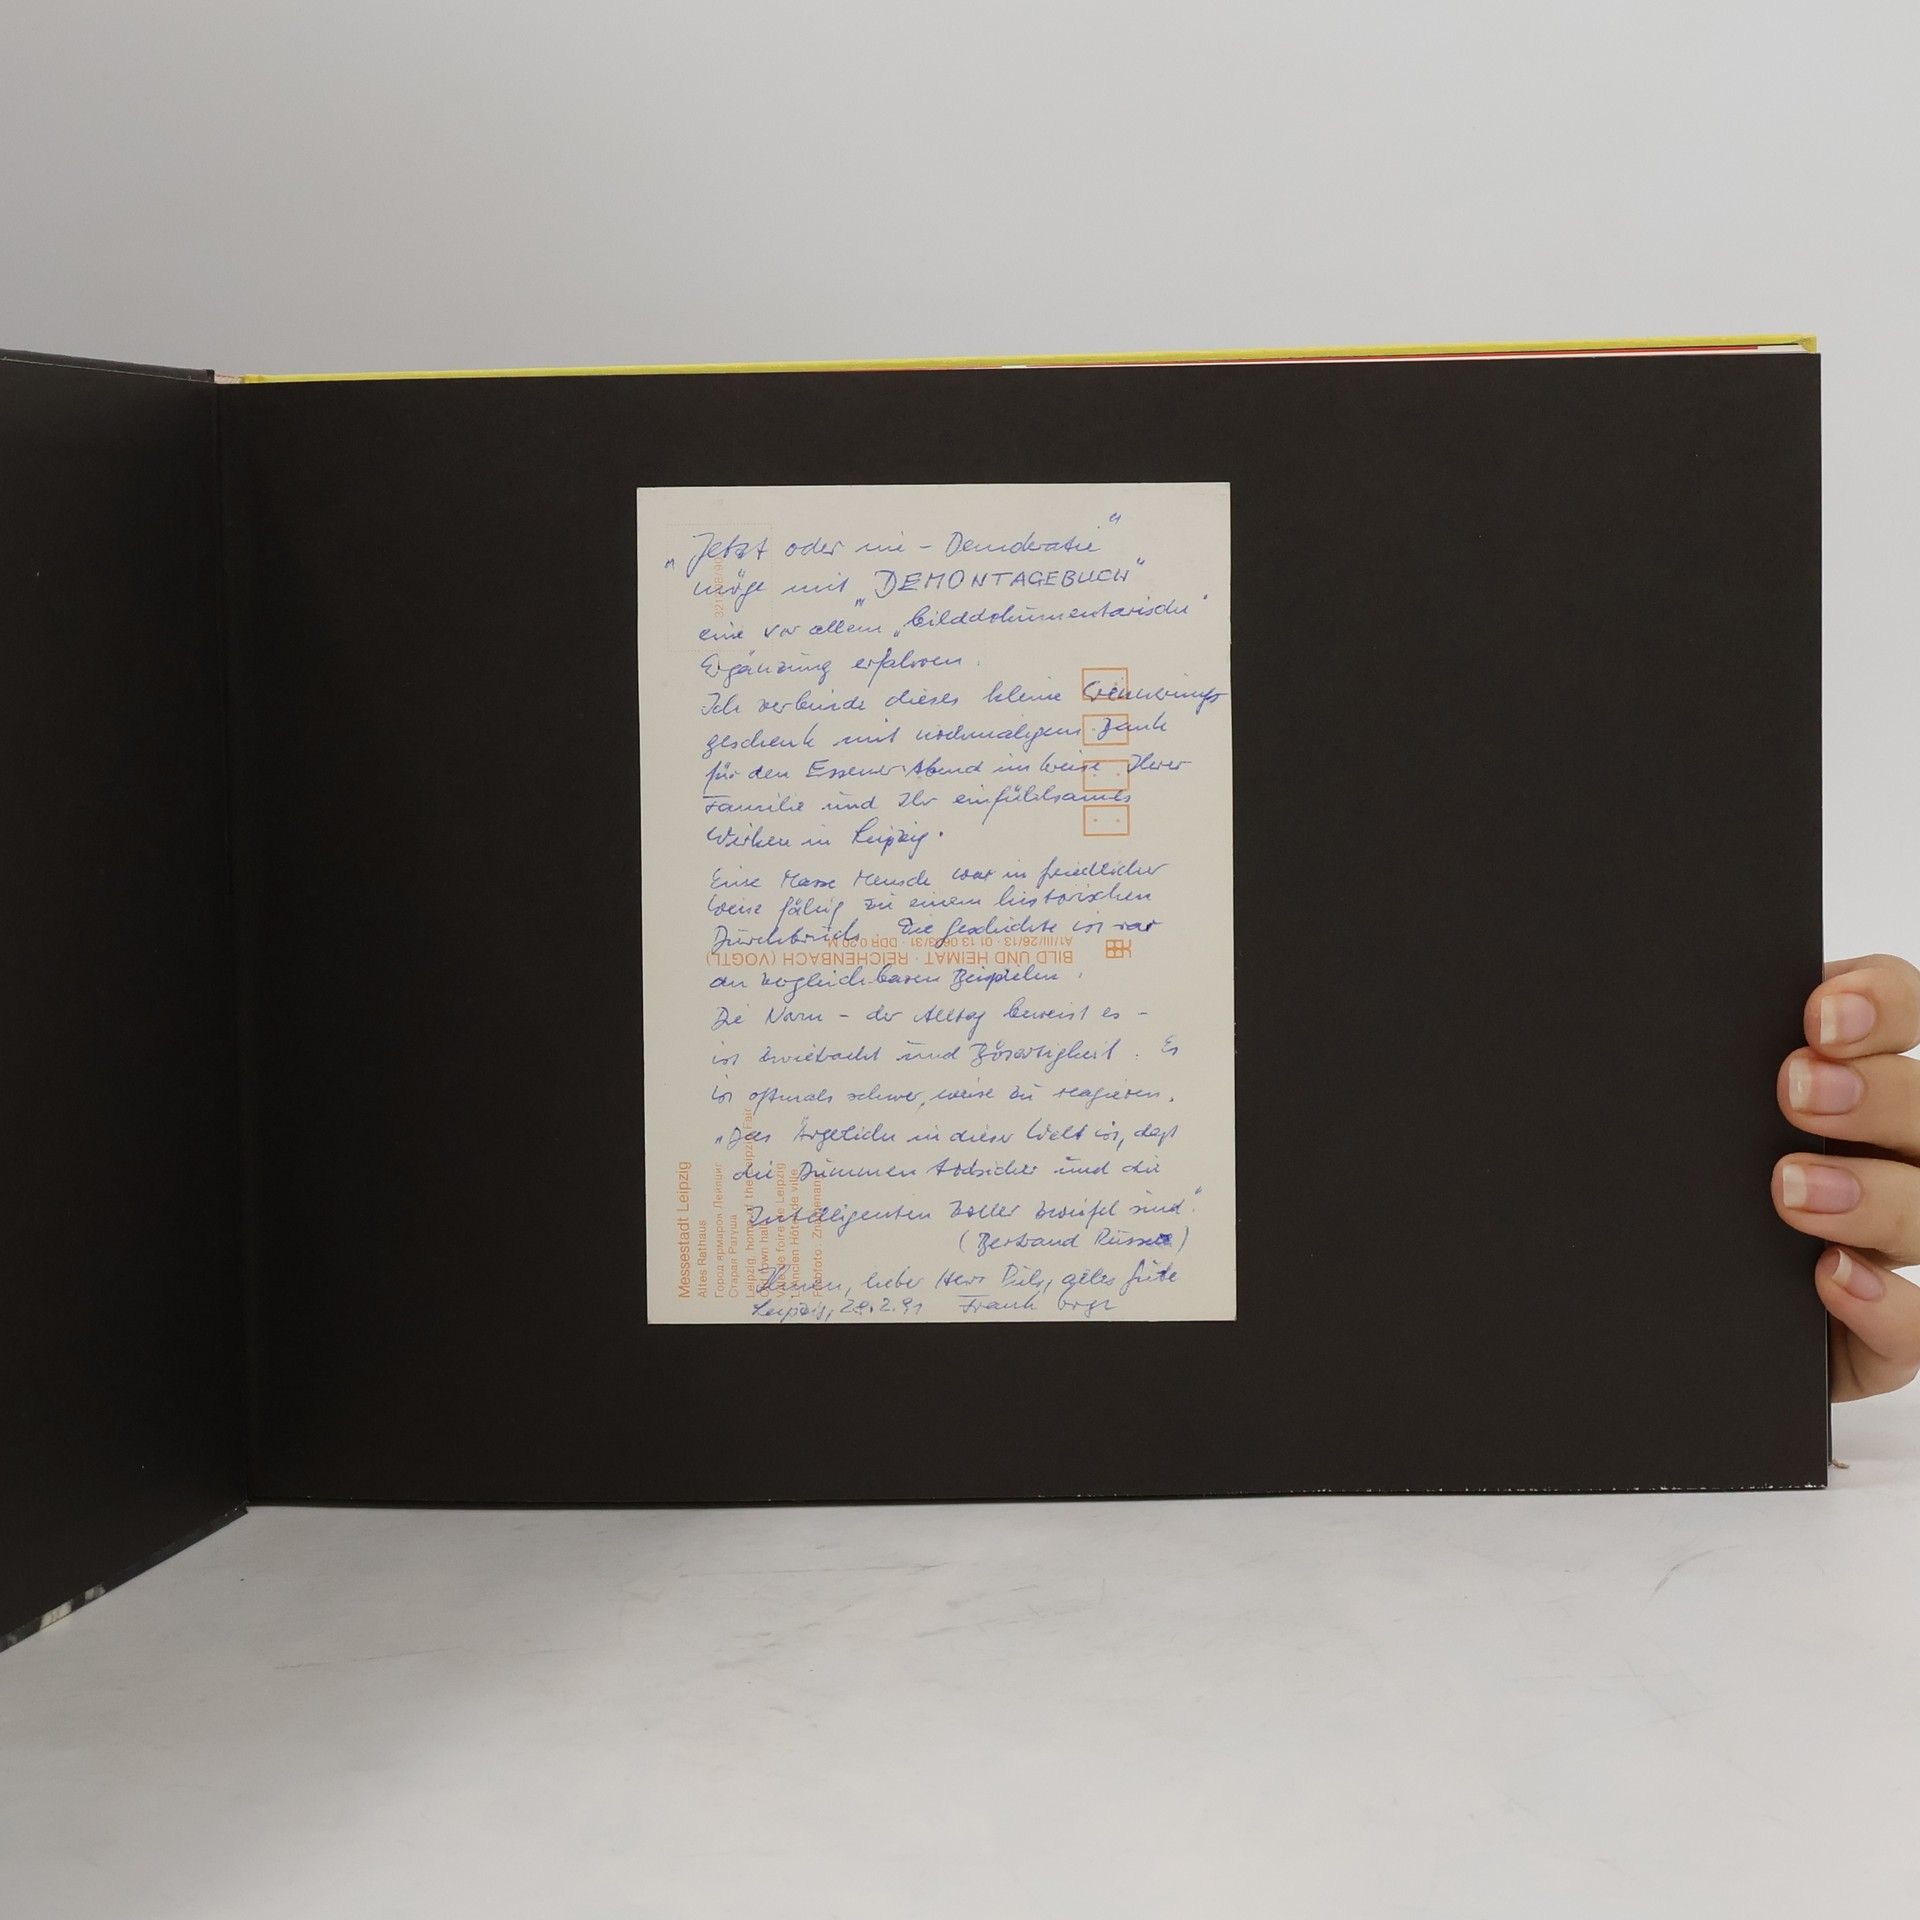 „Jetzt oder nie – Demokratie“
möge mit „DEMONTAGEBUCH“
eine vor allem „bilddokumentarische“
Ergänzung erfahren.
Ich verbinde dieses kleine Erinnerungs-
geschenk mit nochmaligem Dank
für den Essener Abend im Kreise Ihrer
Familie und Ihr einfühlsames
Wirken in Leipzig.
Eine Masse Mensch war in friedlicher
Weise fähig zu einem historischen
Durchbruch. Die Geschichte ist rar
an vergleichbaren Beispielen.
Die Norm – der Alltag beweist es –
ist Zwietracht und Bösartigkeit. Es
ist oftmals schwer, weise zu reagieren.
„Das Ärgerliche in dieser Welt ist, daß
die Dummen todsicher und die
Intelligenten voller Zweifel sind.“
(Bertrand Russell)
Ihnen, lieber Herr, alles Gute
Leipzig, 2.91 Frank
BILD UND HEIMAT · REICHENBACH (VOGTL)
A1/III/26/13 · 01 13 06 DDR 0,20 M
Messestadt Leipzig
Altes Rathaus
Город ярмарок Лейпциг
Старая Ратуша
Leipzig, home of the Leipzig Fair
Old town hall
Ville de foire de Leipzig
L'ancien Hôtel de ville